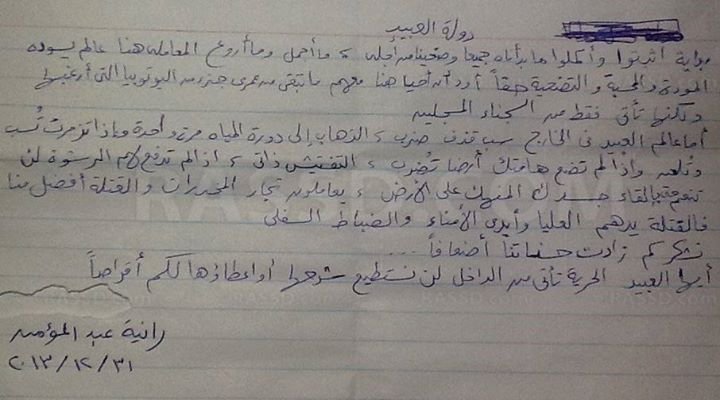 دولة العبيد
بداية أثبتوا وأكملوا ما بدأناه جميعاً وضحينا من أجله ، ما أجمل وما أروع المعاملة هنا عالم يسوده
المودة والمحبة والتضحية حقاً أود أن أحيا هنا معهم ما تبقى من عمرى جزء من اليوتوبيا التى أرغبها
ولكنها تأتى فقط من الجناء المجليين
أما عالم العبيد فى الخارج سب قذف ضرب ، الذهاب إلى دورة المياه مرة واحدة وماذا تزمرت تُسب
وتُلعن وإذا لم تضع هامتك أرضا تُضرب ، التفتيش ذاتى ، إذا لم تدفع لأم المرسوة لن
تنعم حتى بإلقاء جسدك المنهك على الأرض ، يعاملون تجار المخدرات والقتلة أفضل منا
فالقتلة يدهم العليا وأيدى الأمناء والضباط السفلى
نشكركم زادت حسناتنا أضعافاً...
أيها العبيد الحرية تأتى من الداخل لن نستطيع شرحها أو إعطاؤها لكم أقراصاً
رانية عبد المؤمن
٢٠١٣/١٢/٣١
RASSD.COM